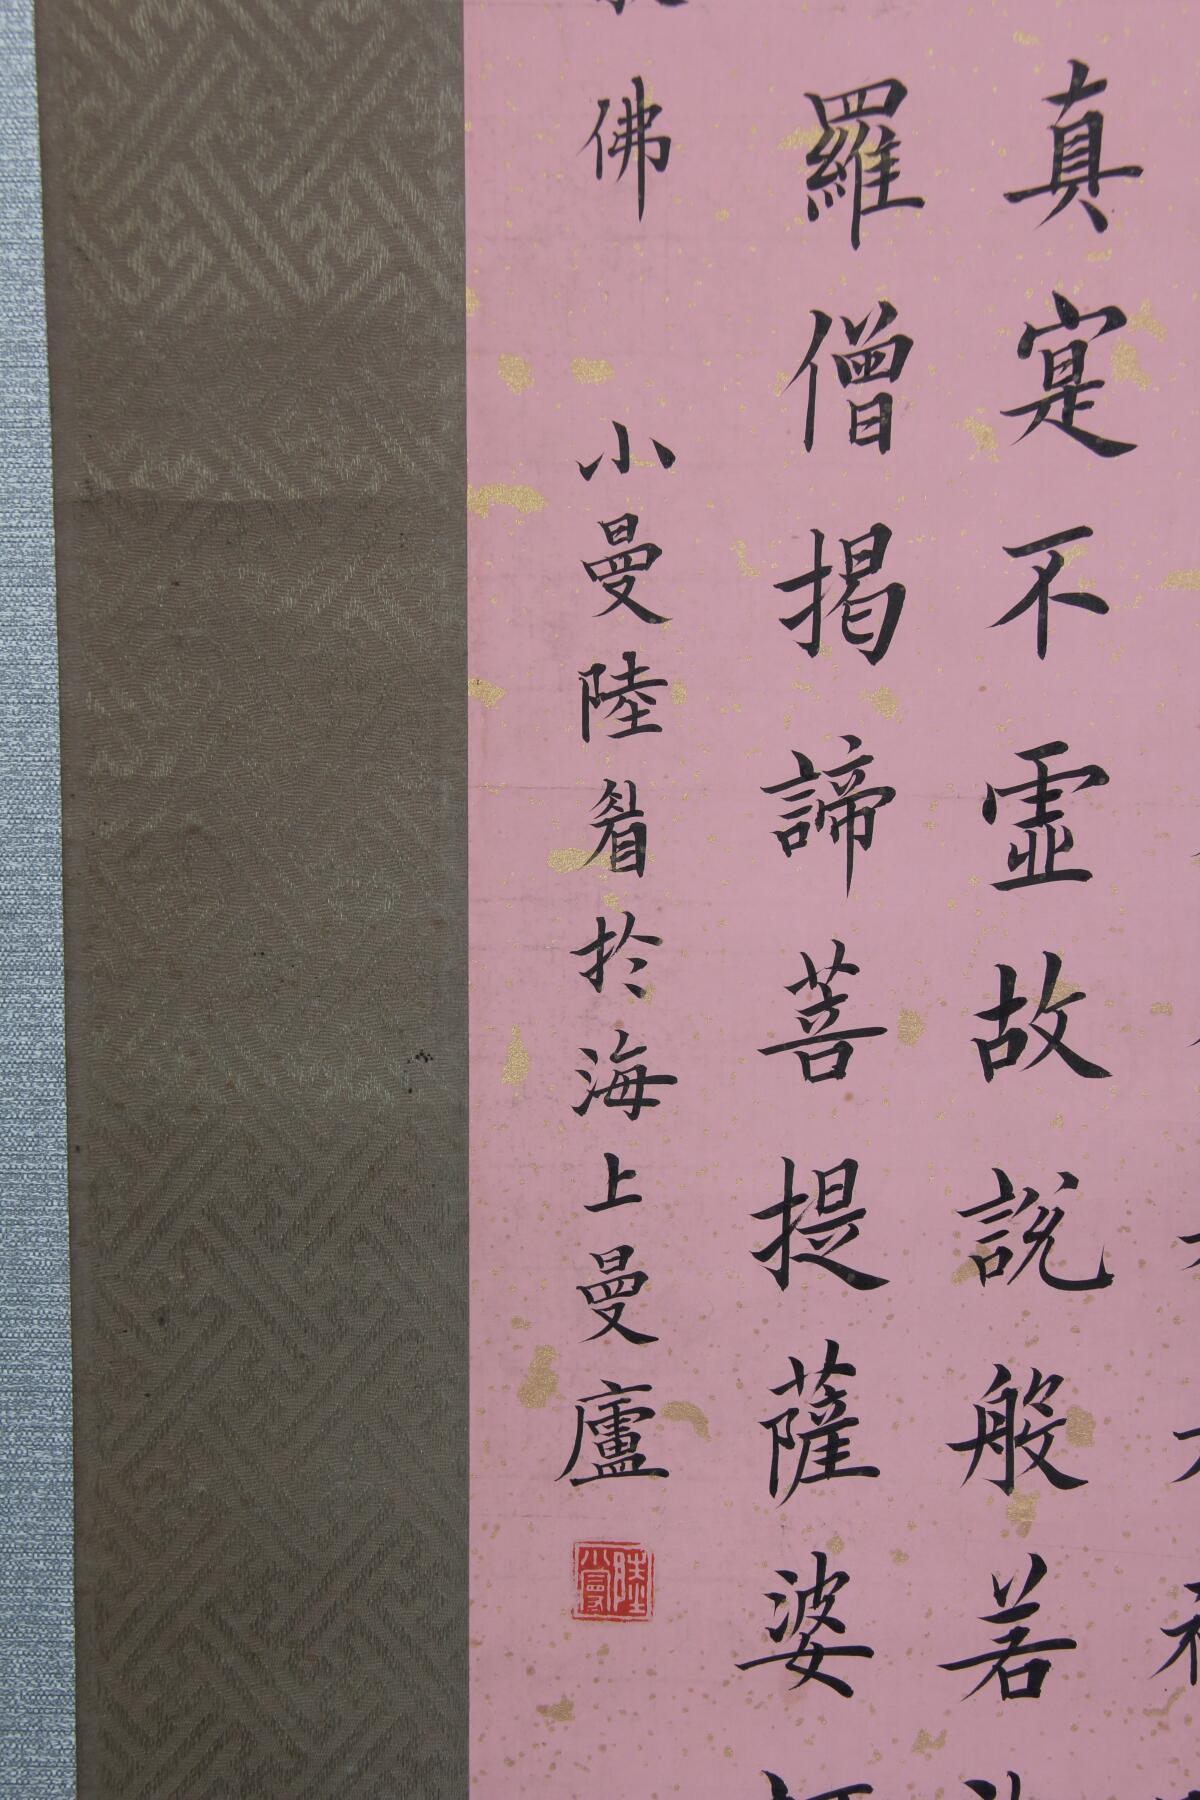 真寔不虛故說般若
羅僧揭諦菩提薩婆
佛 小曼陸眉於海上曼廬
陸小曼